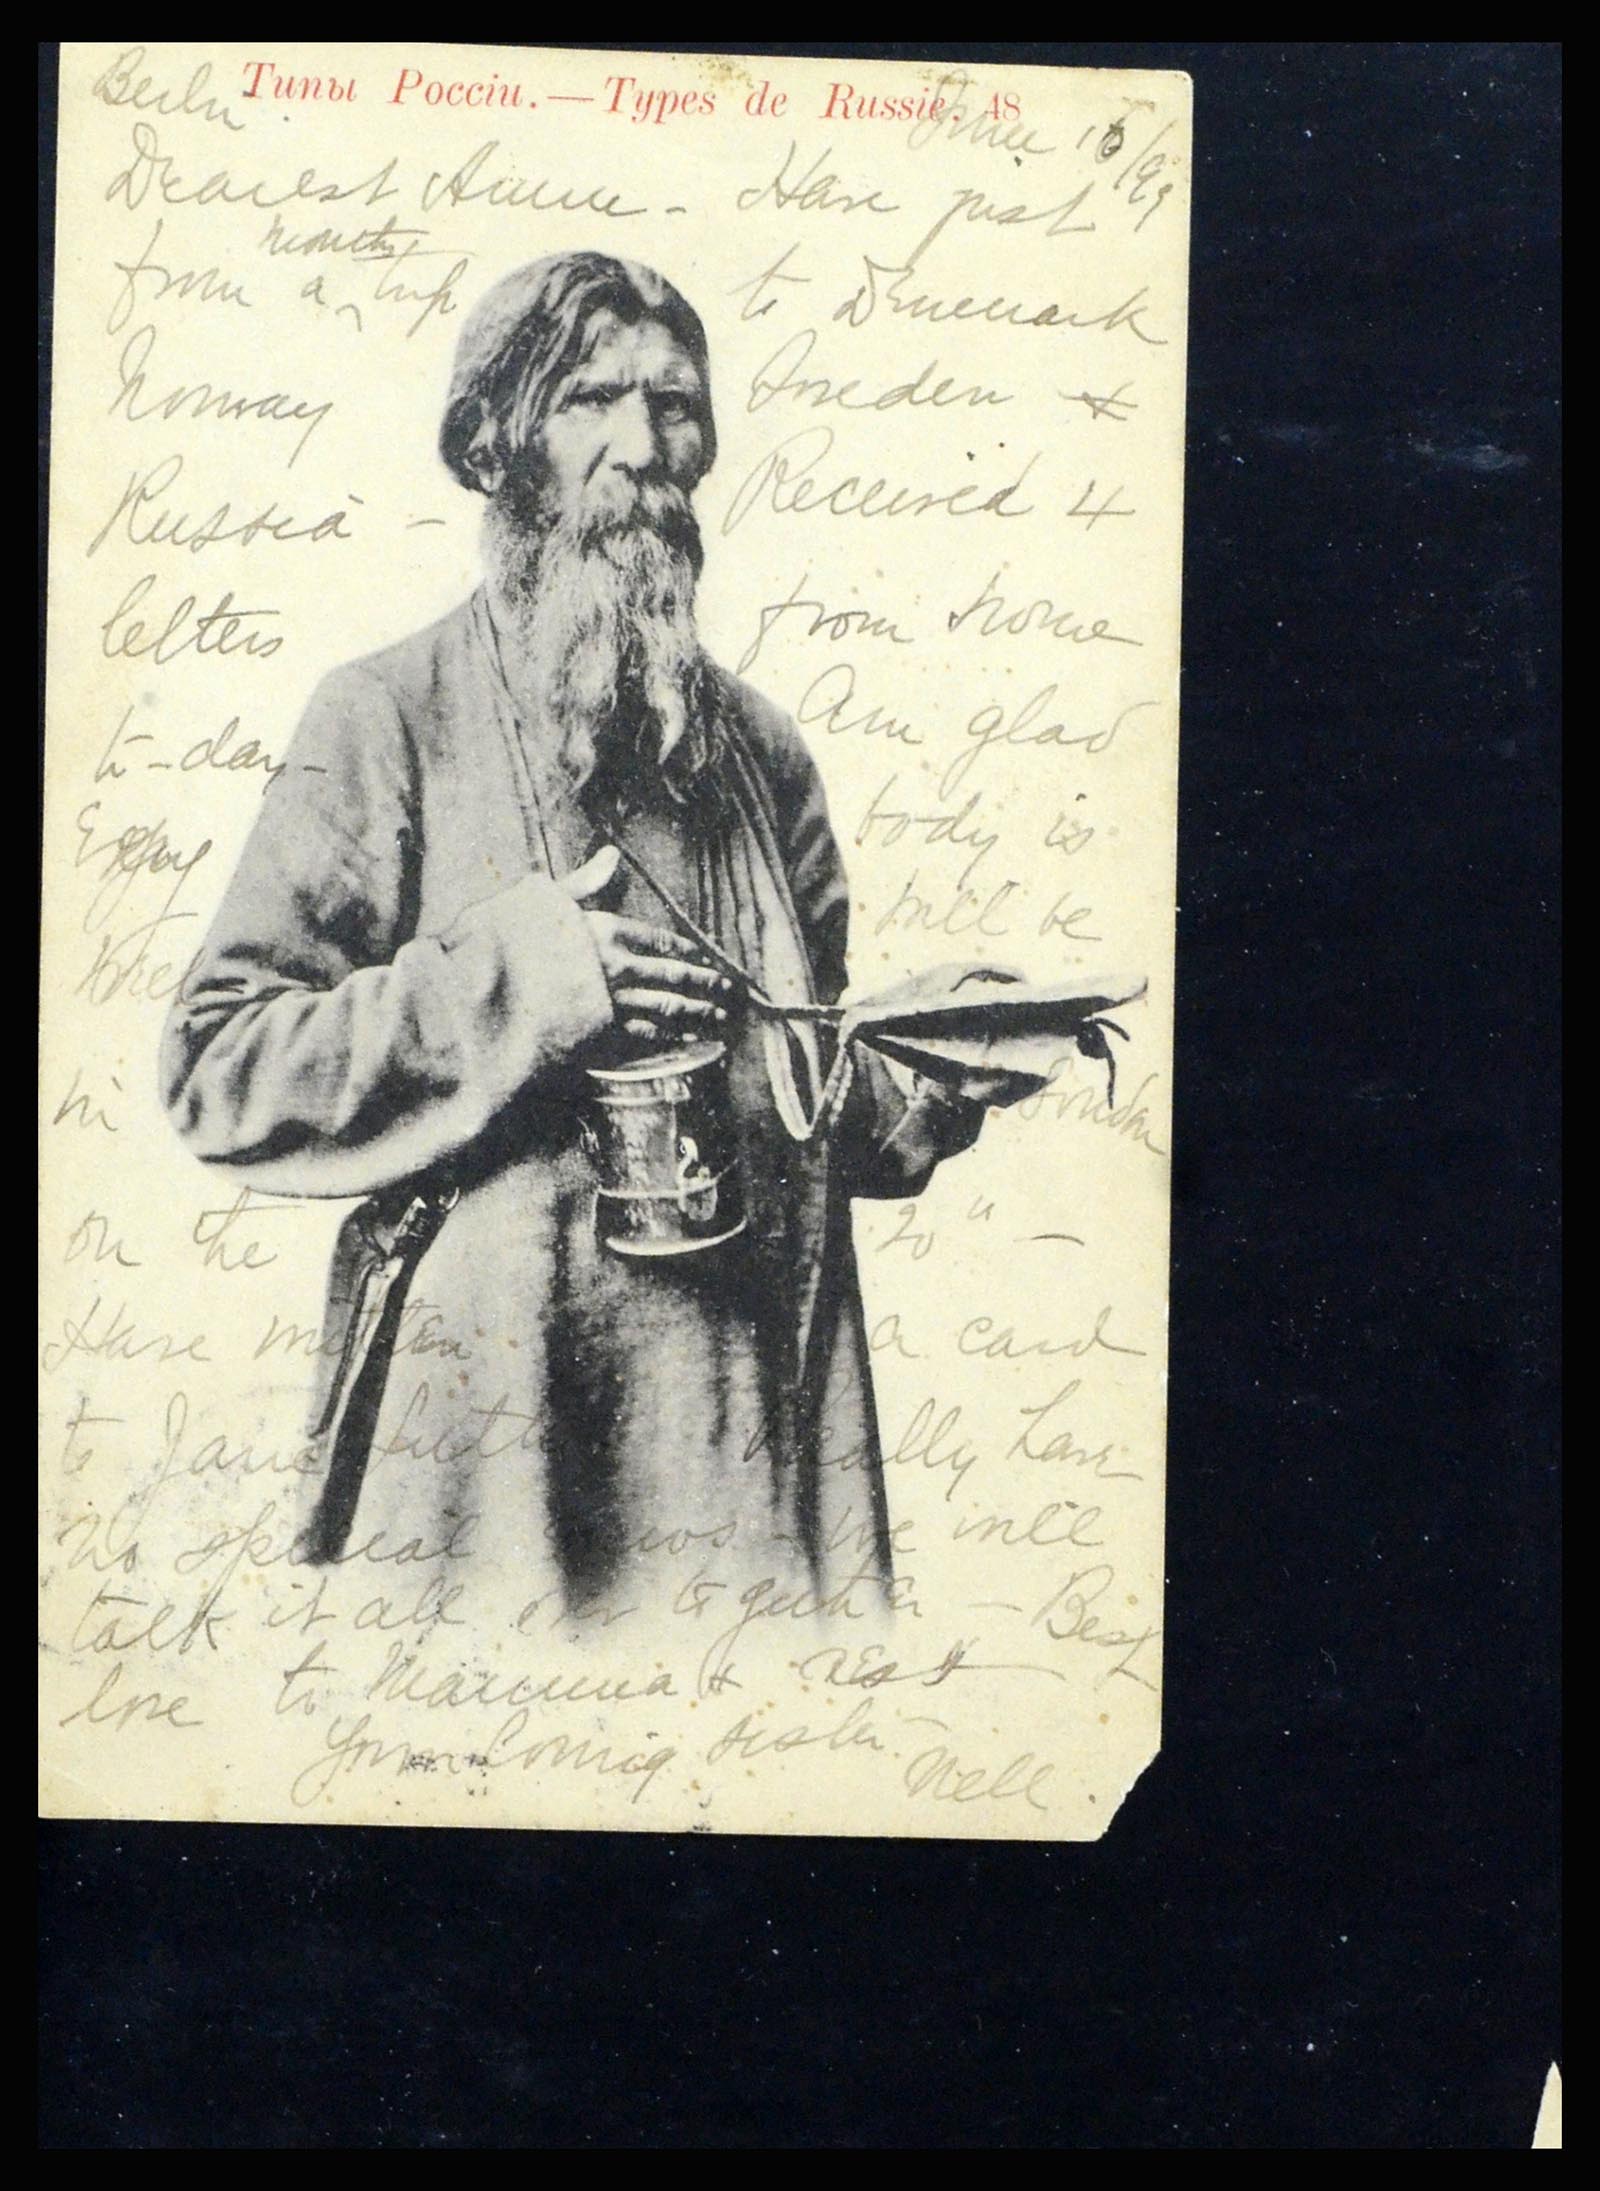 Типы Россіи. — Types de Russie. 48
Berlin. June 16/99
Dearest Anne - Have just
from a months trip to Denmark
Norway Sweden &
Russia - Received 4
letters from home
to-day - Am glad
body is
well will be
in London
on the 20" -
Have written a card
to Jane Really have
no special news - we will
talk it all over together - Best
love to Mamma & rest
Your loving sister -
Nell.